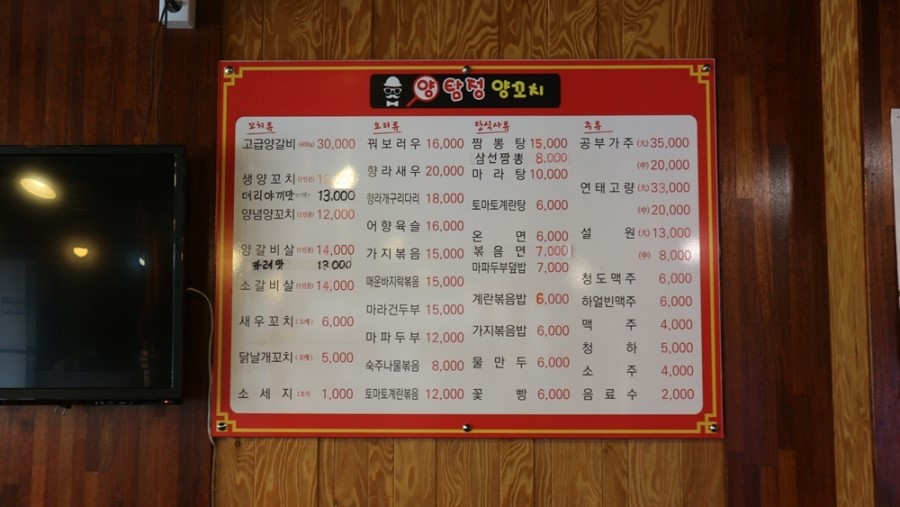 양 탐정 양꼬치
꼬치류
고급양갈비 (400g) 30,000
생양꼬치 (1인분)
더리야끼맛 13,000
양념양꼬치 (1인분) 12,000
양갈비살 (1인분) 14,000
카레맛 13000
소갈비살 (1인분) 14,000
새우꼬치 6,000
닭날개꼬치 5,000
소세지 1,000
요리류
꿔보러우 16,000
향라새우 20,000
향라개구리다리 18,000
어향육슬 16,000
가지볶음 15,000
매운바지락볶음 15,000
마라건두부 15,000
마파두부 12,000
숙주나물볶음 8,000
토마토계란볶음 12,000
탕식사류
짬뽕탕 15,000
삼선짬뽕 8,000
마라탕 10,000
토마토계란탕 6,000
온면 6,000
볶음면 7,000
마파두부덮밥 7,000
계란볶음밥 6,000
가지볶음밥 6,000
물만두 6,000
꽃빵 6,000
주류
공부가주 (大) 35,000
(中) 20,000
연태고량 (大) 33,000
(中) 20,000
설원 (大) 13,000
(中) 8,000
청도맥주 6,000
하얼빈맥주 6,000
맥주 4,000
청하 5,000
소주 4,000
음료수 2,000